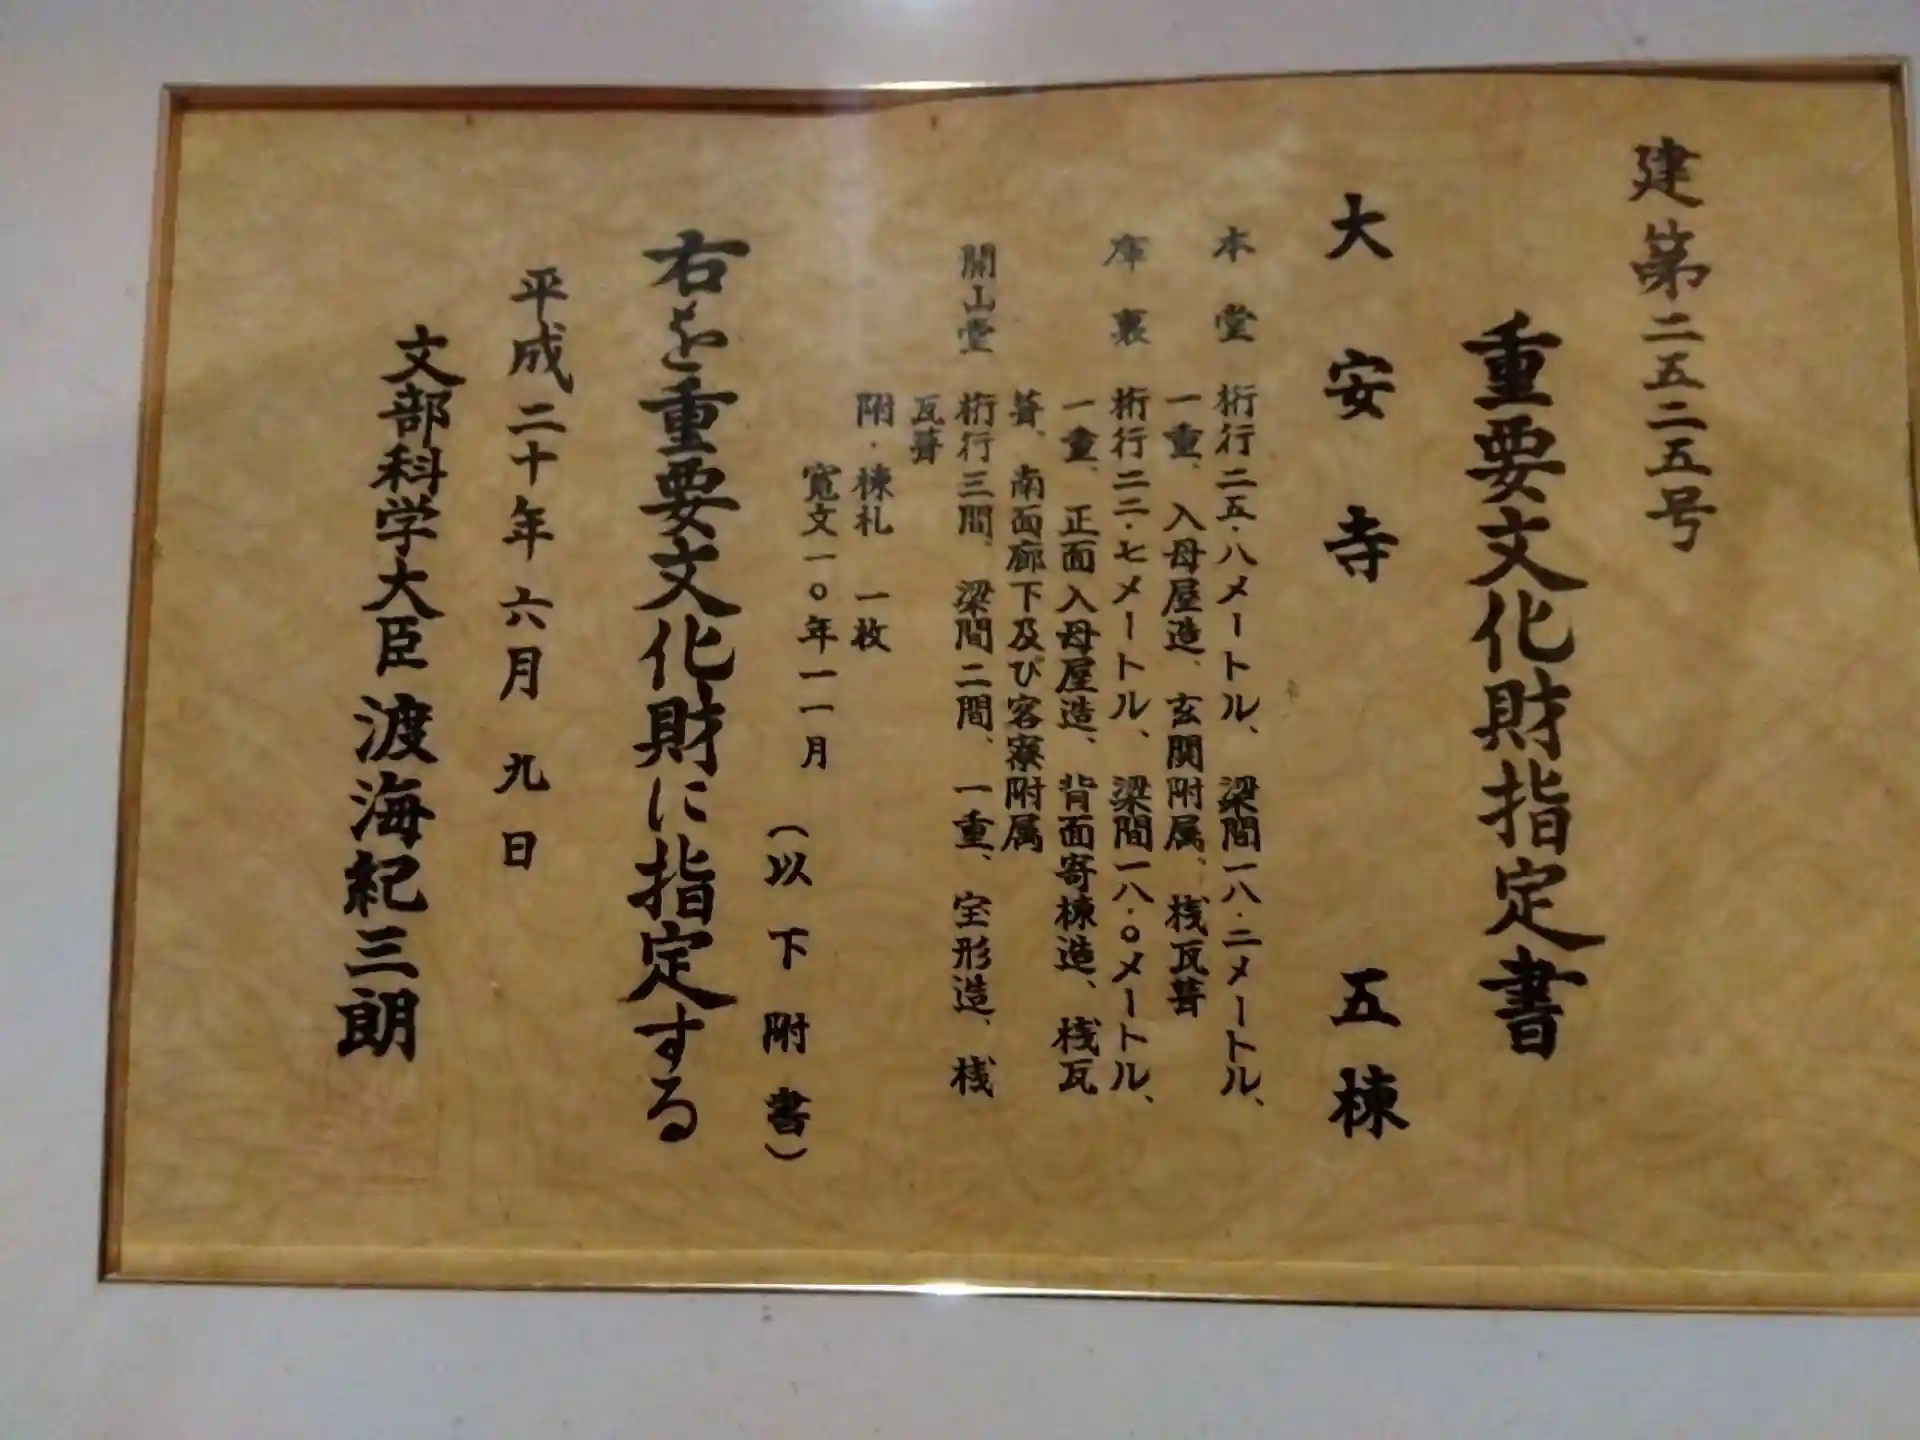 建第二五二五号
重要文化財指定書
大安寺 五棟
本堂 桁行二五・八メートル、梁間一八・二メートル、
一重、入母屋造、玄関附属、桟瓦葺
庫裏 桁行二二・七メートル、梁間一八・〇メートル、
一重、正面入母屋造、背面寄棟造、桟瓦
葺、南面廊下及び客寮附属
開山堂 桁行三間、梁間二間、一重、宝形造、桟
瓦葺
附・棟札 一枚
寛文一〇年一一月
(以下附書)
右を重要文化財に指定する
平成二十年六月九日
文部科学大臣 渡海紀三朗